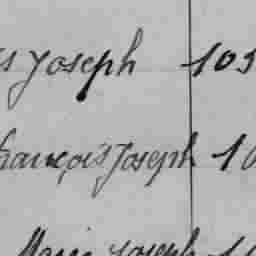 Joseph 103
françois Joseph 10
Marie Joseph